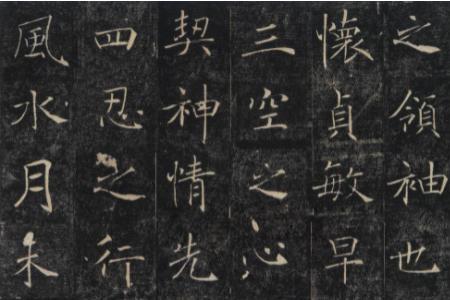 之領袖也
懷貞敏早
三空之心
契神情先
四忍之行
風水月未